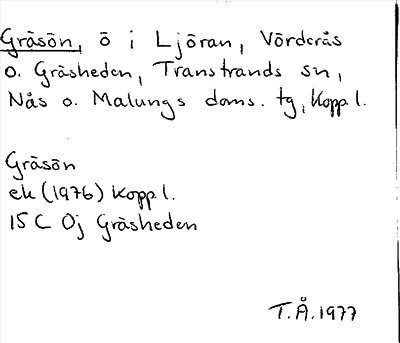 Gräsön, ö i Ljöran, Vörderås
o. Gräsheden, Transtrands sn,
Nås o. Malungs doms. tg, Kopp. l.
Gräsön
ek (1976) Kopp l.
15 C Oj Gräsheden
T.Å. 1977